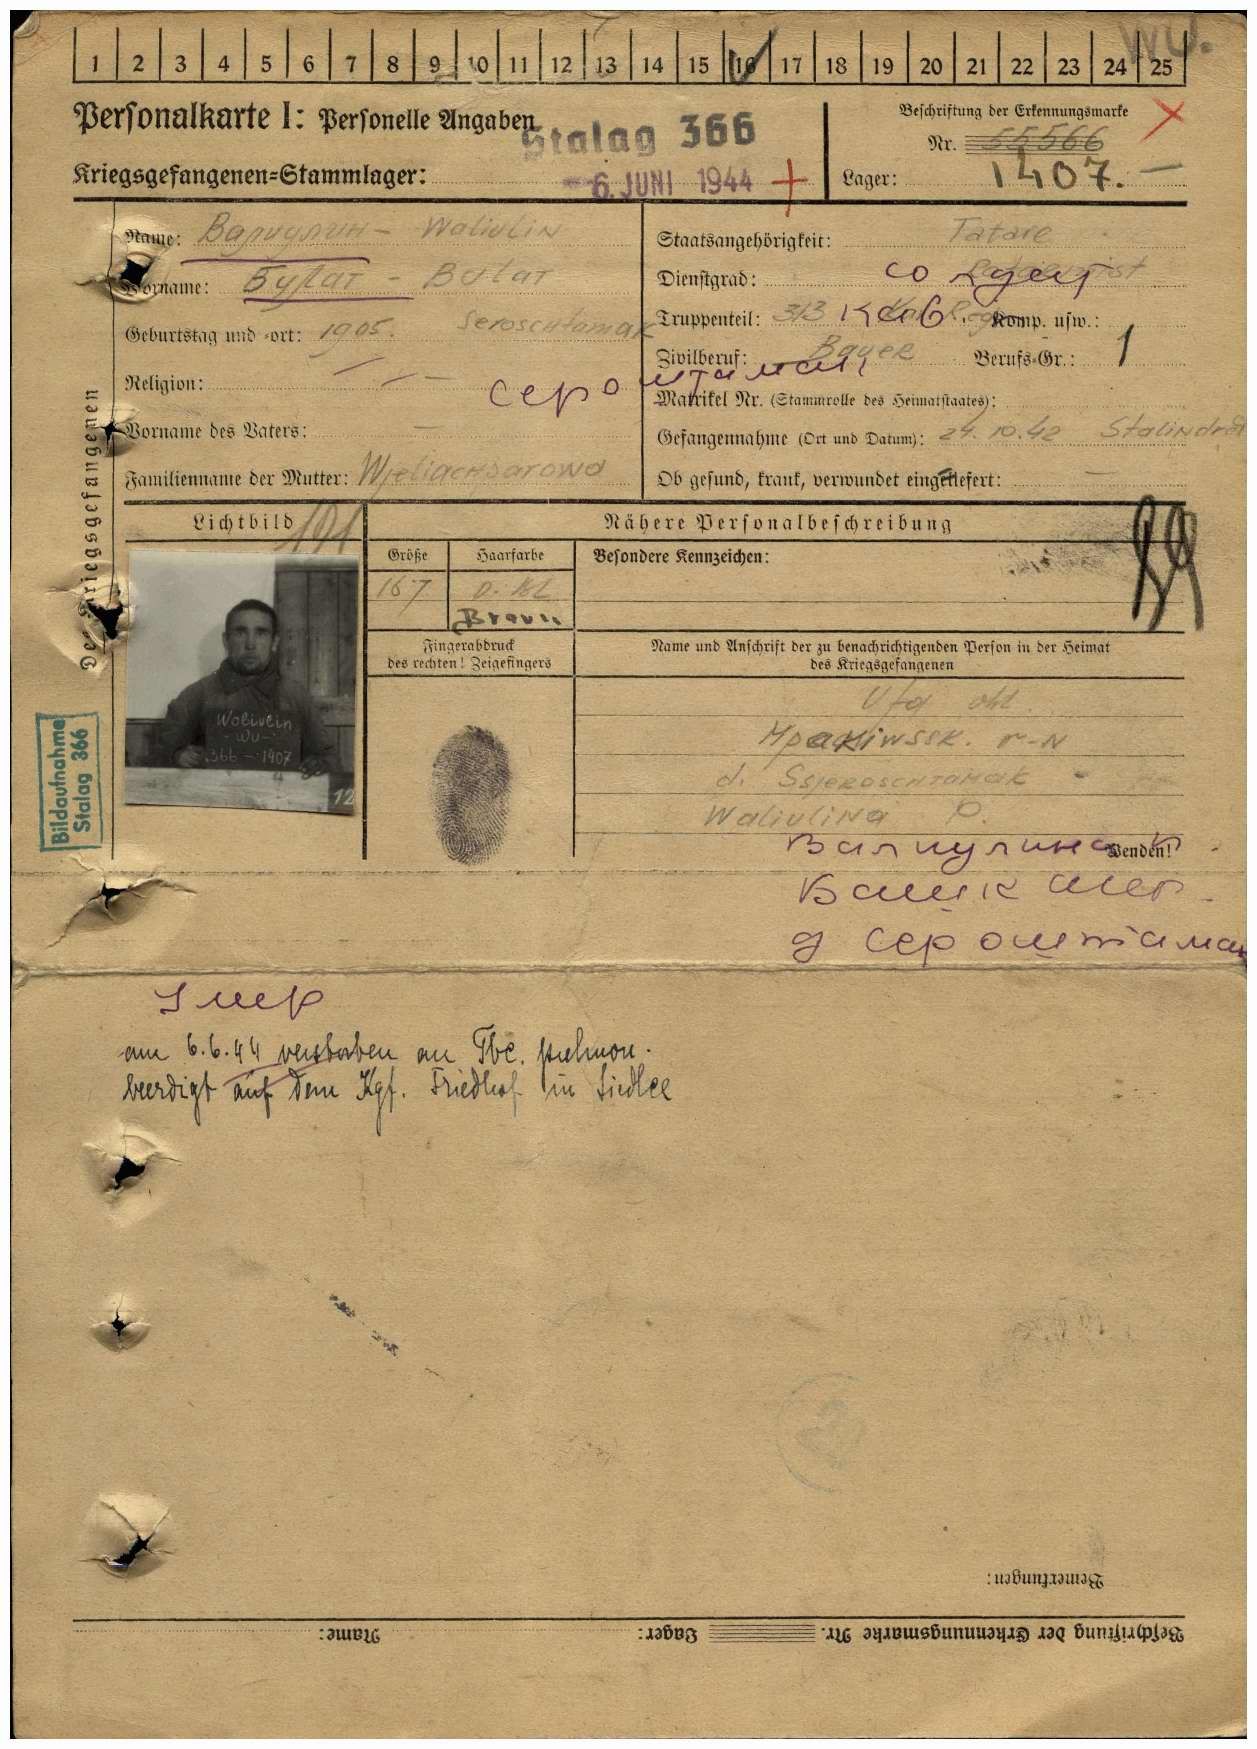 WU.
1 2 3 4 5 6 7 8 9 10 11 12 13 14 15 16 17 18 19 20 21 22 23 24 25
Personalkarte I: Personelle Angaben
Stalag 366
Kriegsgefangenen=Stammlager:
6. JUNI 1944
Beschriftung der Erkennungsmarke
Nr. 55566
1407.
Lager:
Des Kriegsgefangenen
Name: Валиулин - Waliulin
Vorname: Булат - Bulat
Geburtstag und -ort: 1905. Seroschtamak
Religion:
Сероштамак
Vorname des Vaters: -
Familienname der Mutter:
Staatsangehörigkeit: Tatare
Dienstgrad: солдат
Truppenteil: 313 кав. Komp. usw.:
Zivilberuf: Bauer Berufs=Gr.: 1
Matrikel Nr. (Stammrolle des Heimatstaates):
Gefangennahme (Ort und Datum): 24.10.42 Stalindrad
Ob gesund, krank, verwundet eingeliefert: -
Lichtbild
Nähere Personalbeschreibung
Größe
167
Haarfarbe
Braun
Besondere Kennzeichen:
Fingerabdruck
des rechten! Zeigefingers
Name und Anschrift der zu benachrichtigenden Person in der Heimat
des Kriegsgefangenen
Ufa obl.
r-N
d. Ssjeroschtamak
Waliulina
Wolivlin
-Wu-
366 - 1907
12
Bildaufnahme
Stalag 366
Валиулина
Wenden!
Башк
д Сероштамак
Умер
am 6.6.44 verstorben an Tbc. pulmon.
beerdigt auf dem Kgf. Friedhof in Siedlce
Bemerkungen:
Beschriftung der Erkennungsmarke Nr. Lager: Name: